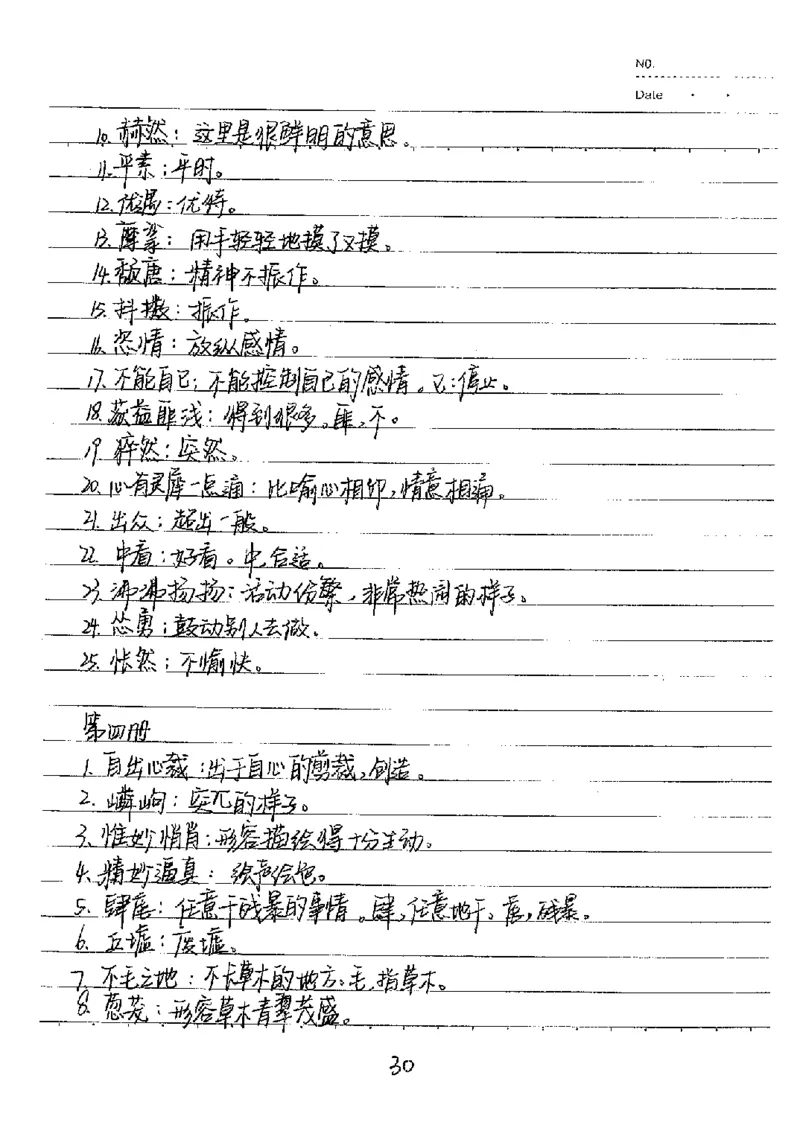 NO.
Date
10. 赫然：这里是很鲜明的意思。
11. 平素：平时。
12. 优渥：优待。
13. 摩挲：用手轻轻地摸了又摸。
14. 颓唐：精神不振作。
15. 抖擞：振作。
16. 恣情：放纵感情。
17. 不能自已：不能控制自己的感情。已：停止。
18. 获益匪浅：得到很多。匪，不。
19. 猝然：突然。
20. 心有灵犀一点通：比喻心相印，情意相通。
21. 出众：超出一般。
22. 中看：好看。中，合适。
23. 沸沸扬扬：活动份繁，非常热闹的样子。
24. 怂勇：鼓动别人去做。
25. 怅然：不愉快。
第四册
1. 自出心裁：出于自心的剪裁，创造。
2. 嶙峋：突兀的样子。
3. 惟妙惟肖：形容描绘得十分生动。
4. 精妙逼真：绘声绘色。
5. 肆虐：任意干残暴的事情。肆，任意地干。虐，残暴。
6. 丘墟：废墟。
7. 不毛之地：不长草木的地方。毛，指草木。
8. 葱茏：形容草木青翠茂盛。
30